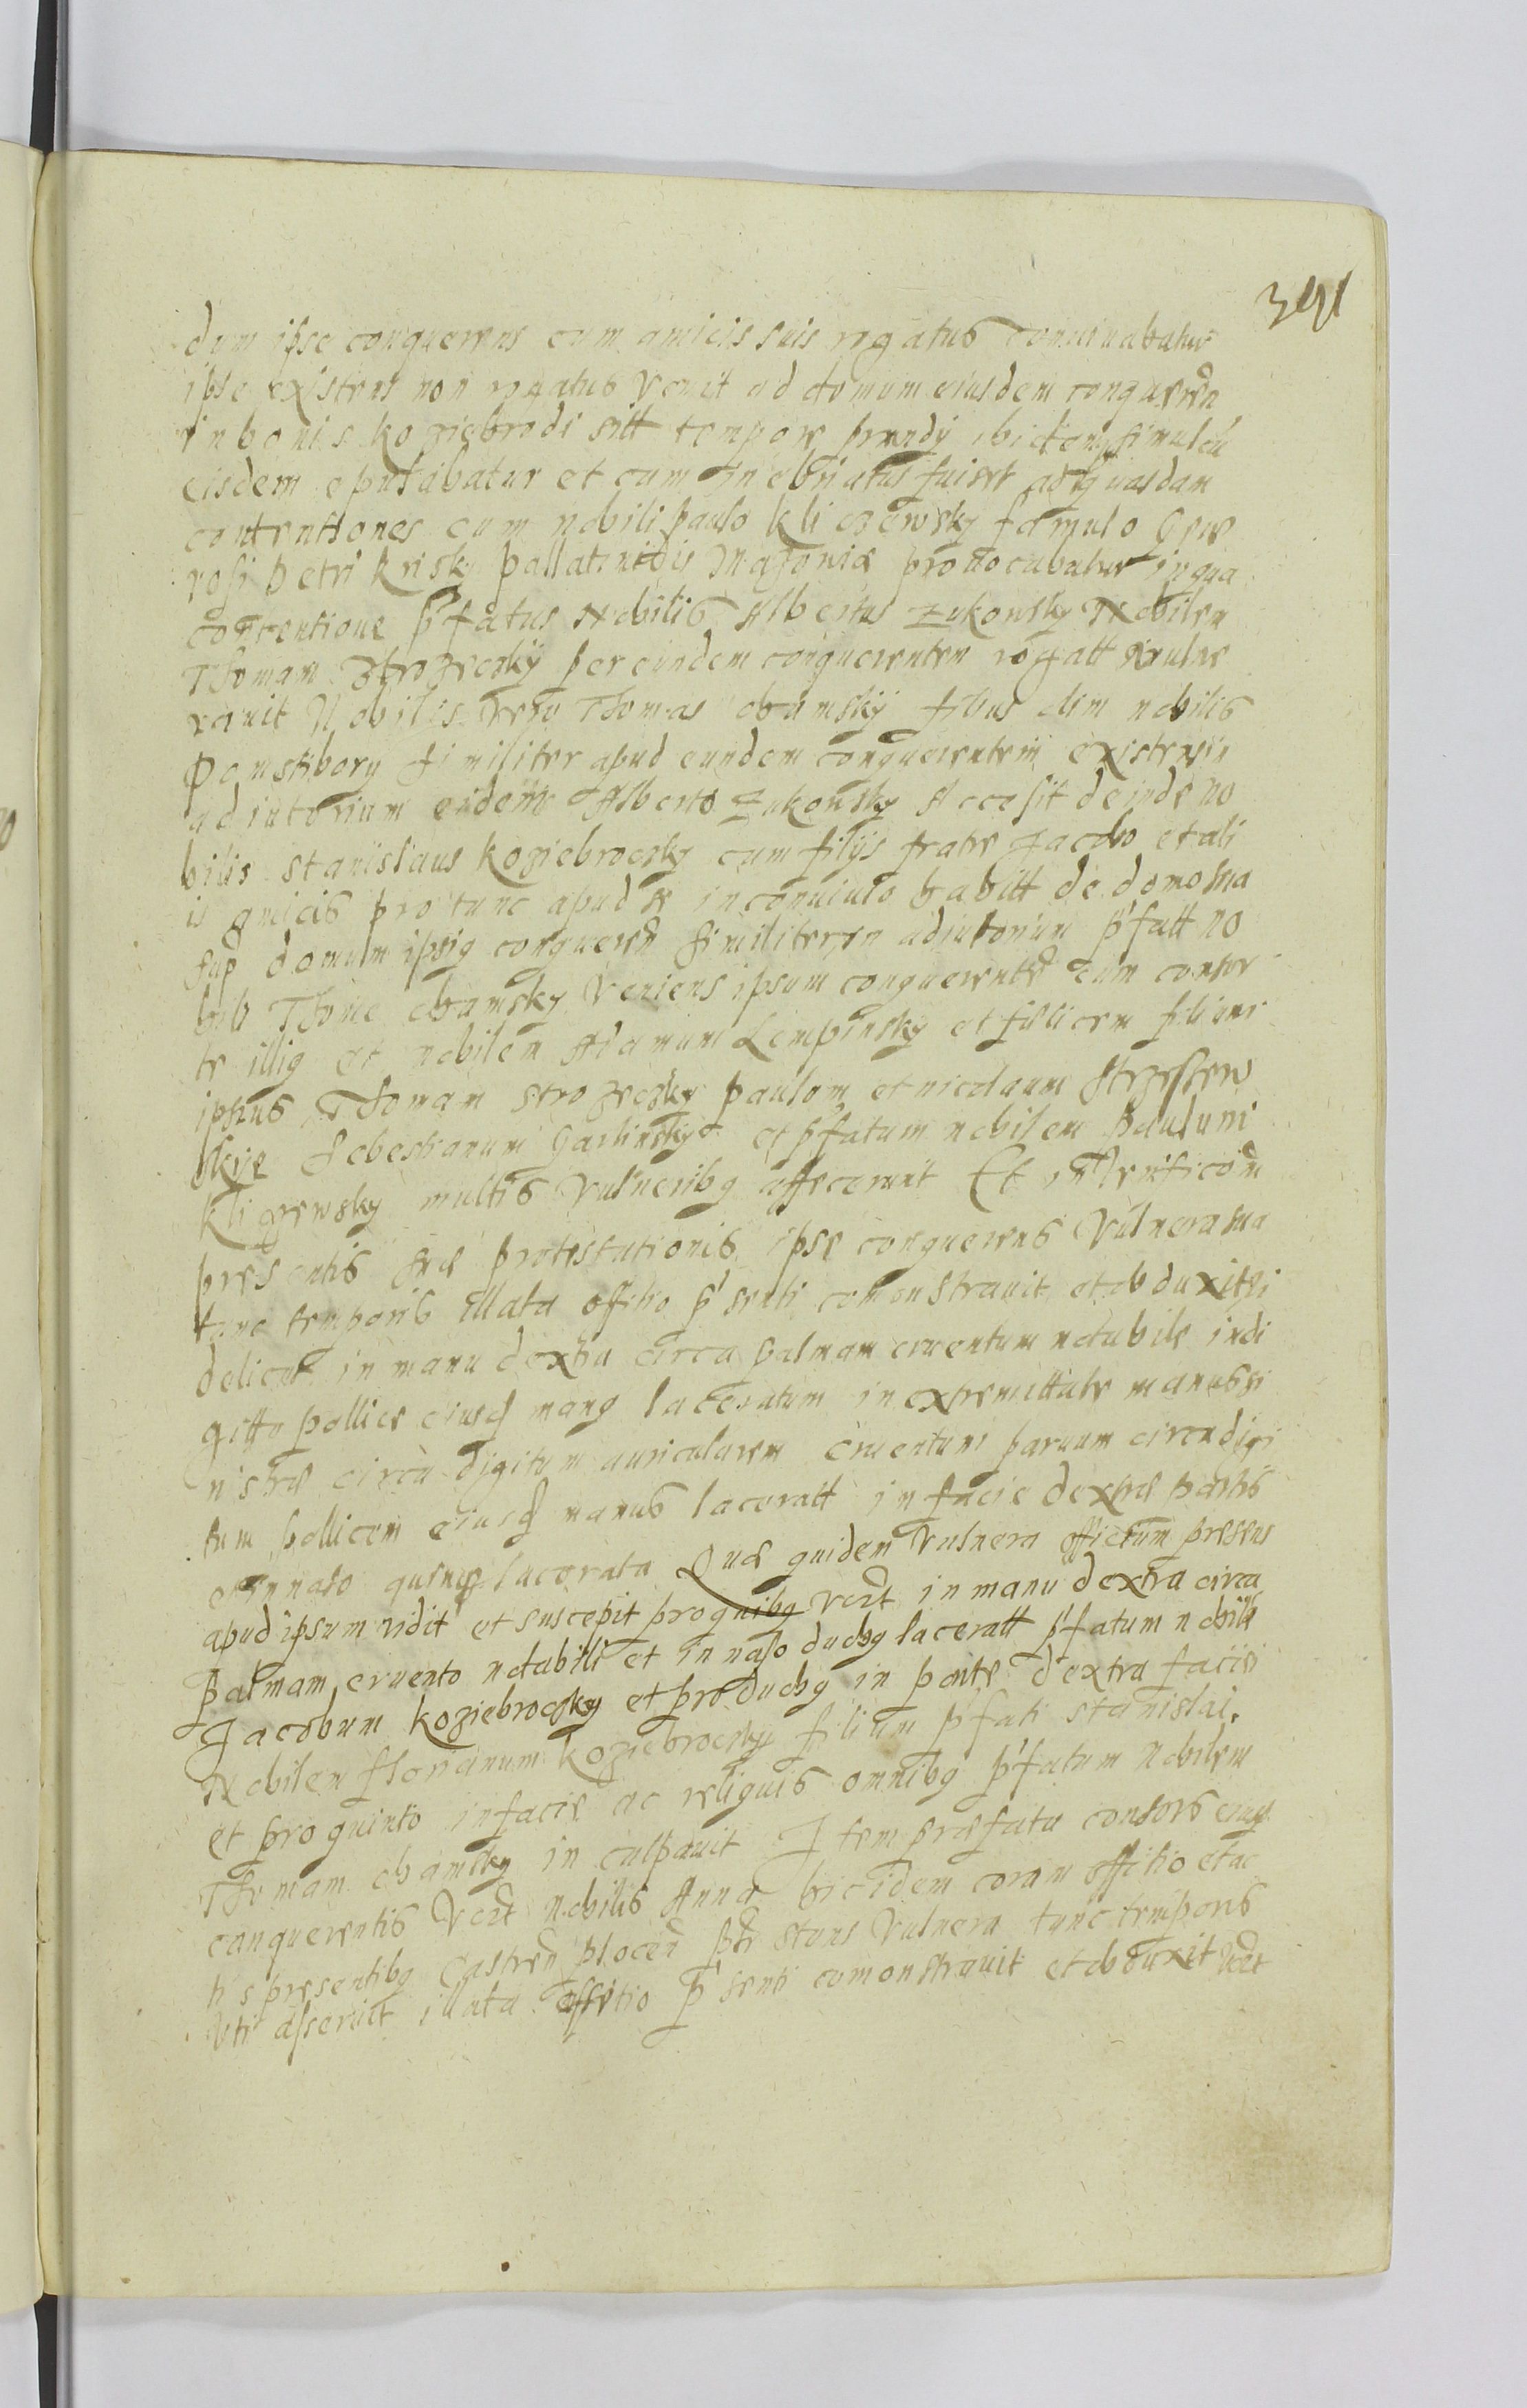 391
dum ipse conquerens cum amicis suis rogatus conuiuabatur
ipse existens non rogatus venit ad domum eiusdem conqueren
in bonis koziebrodi sitt tempore prandÿ ibidemq simul cu
eisdem epulabatur et cum inebriatus fuiset ad quasdam
contentiones cum nobili paulo kliczewsky famulo Gene
rosi petri krisky pallatinidis Mazoviæ prouocabatur in qua
contentione p'fatus Nobilis Albertus Zukowsky Nobilem
Thomam per eundem conquerentem rogatt vulne
rauit Nobilis vero Thomas obamskÿ filius olim nobilis
similiter apud eundem conquerentem existens in
adiutorium eidem Alberto Zukowsky Accesit deinde no
bilis stanislaus koziebroczky cum filÿs fratre Jacobo et ali
is amicis pro tunc apud se in conuiuio habitt de domo sua
sup domum ipsig conqueren similiter in adiutorium p'fatt no
bilis Thome obamsky veniens ipsum conquerentem cum consor
te illig et nobilem Adamum Lempinsky et fælicem filium
ipsius Thomam strozeczky paulum et nicolaum
skie sebestianum Garlinsky et p'fatum nobilem paulum
kliczewsky multis vulneribg affecerunt Et in verificoem
presentis suæ protestationis ipse conquerens vulnera sua
tunc temporis illata offitio p'senti comonstrauit et obduxit vi
delicet in manu dextra circa palmam cruentum notabile in di
gitto pollice eiusq mang laceratum in extremittate manus si
nistræ circa digitum auricularem cruentum paruum circa digi
tum pollicem eiusq manus laceratt in facie dextræ partis
et in naso quinq lacerata Quæ quidem vulnera officium presens
apud ipsum vidit et suscepit pro quibg vert in manu dextra circa
palmam cruento notabili et in naso duobg laceratt p'fatum nobile
Jacobum koziebroczky et pro duobg in parte dextra faciei
Nobilem florianum koziebroczky filium p'fati stanislai.
et pro quinto in facie ac reliquis omnibg p'fatum nobilem
Thomam obamsky inculpauit Item præfata consors eiusq
conquerentis vert nobilis Anna bicidem coram offitio et ac
tis presentibg Castren plocen stans vulnera tunc temporis
vti asseruit illata offitio p'senti comonstrauit et obduxit vert